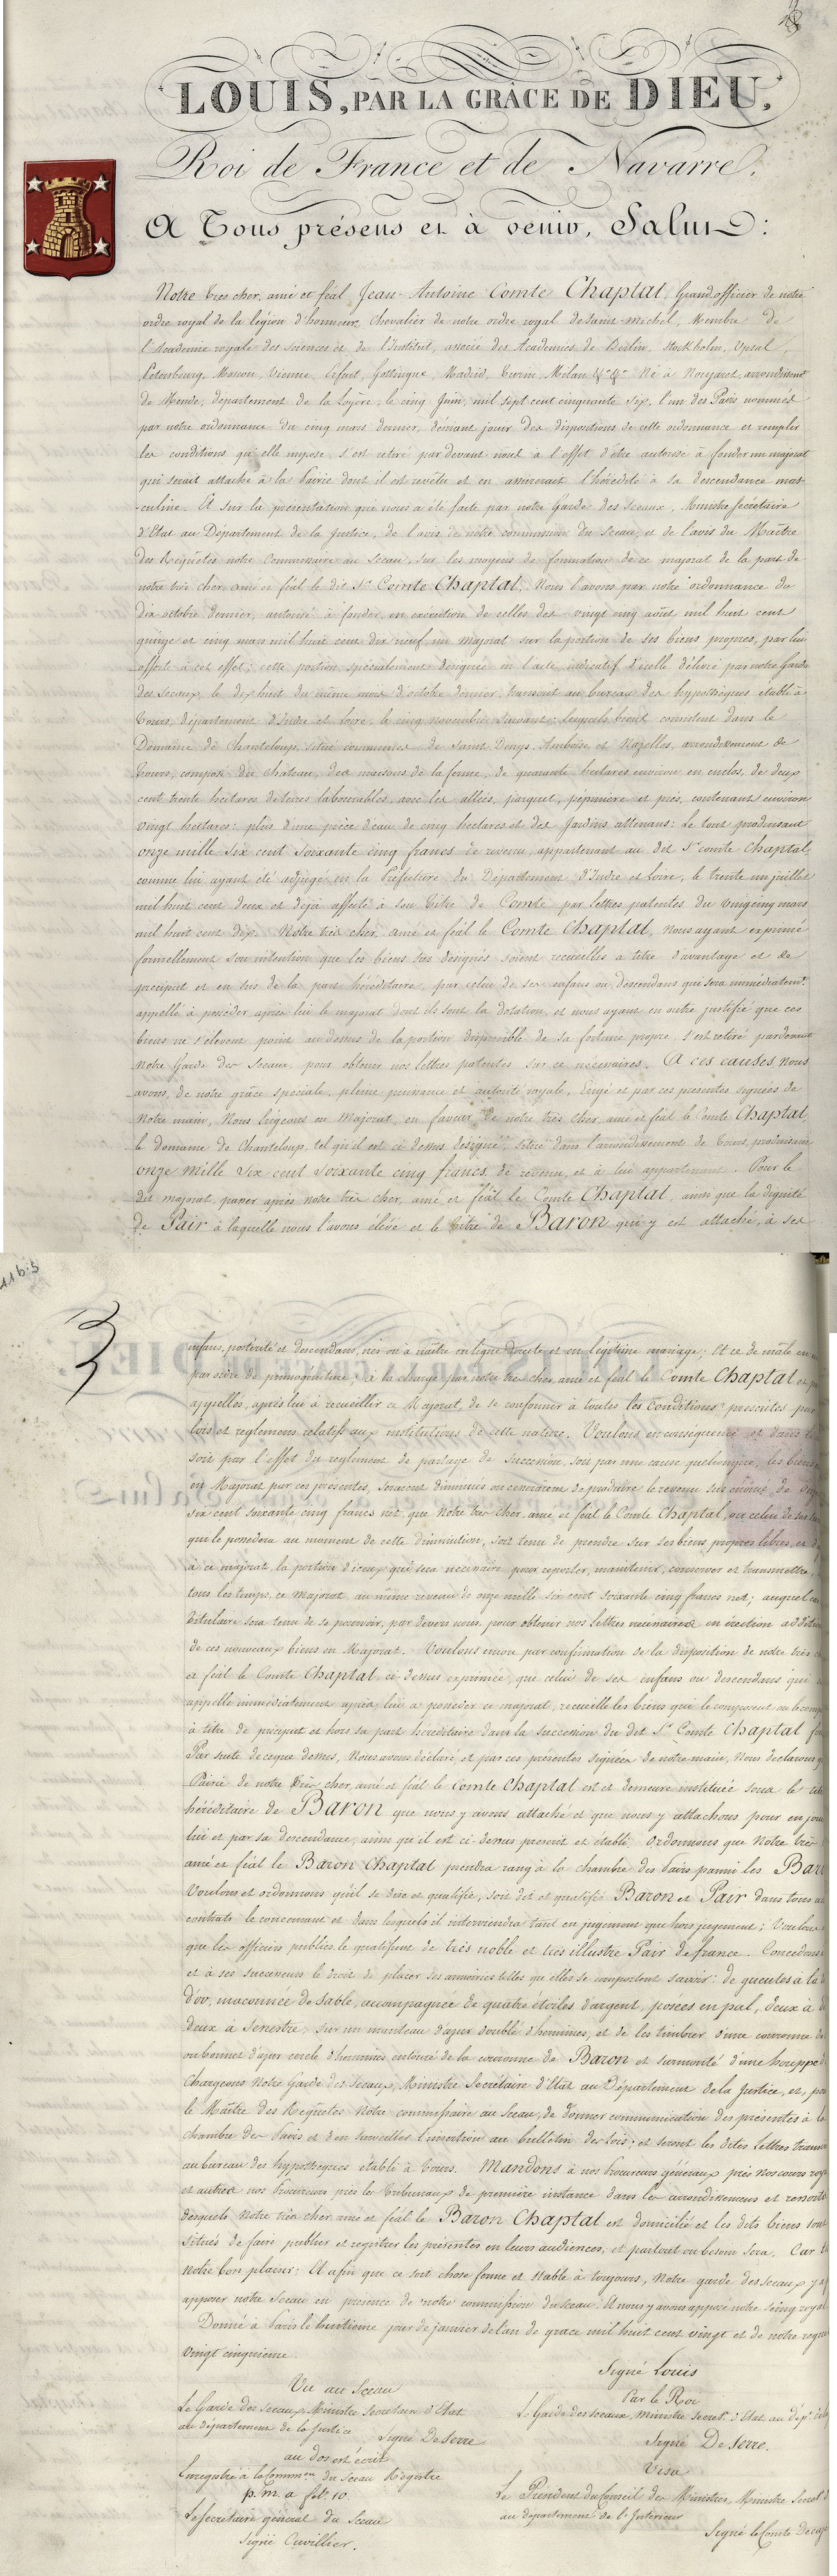 LOUIS, PAR LA GRÂCE DE DIEU,
Roi de France et de Navarre,
A Tous présens et à venir, Salut:
Notre très cher, amé et féal Jean-Antoine Comte Chaptal, Grand officier de notre
ordre royal de la légion d'honneur, Chevalier de notre ordre royal de Saint-Michel, Membre de
l'Académie royale des sciences et de l'Institut, associé des Académies de Berlin, Stockholm, Upsal,
Petersbourg, Moscou, Vienne, Erfurt, Gottingue, Madrid, Turin, Milan &a &a Né à Nougaret, arrondissemt
de Mende, département de la Lozère, le cinq Juin, mil sept cent cinquante six, l'un des Pairs nommés
par notre ordonnance du cinq mars dernier, désirant jouir des dispositions de cette ordonnance et remplir
les conditions qu'elle impose, s'est retiré pardevant nous à l'effet d'être autorisé à fonder un majorat
qui serait attaché à la Pairie dont il est revêtu et en assurerait l'hérédité à sa descendance mas-
-culine. Et sur la présentation qui nous a été faite par notre Garde des Sceaux, Ministre Secrétaire
d'Etat au Département de la Justice, de l'avis de notre commission du Sceau, et de l'avis du Maître
des Requêtes notre Commissaire au Sceau, sur les moyens de formation de ce majorat de la part de
notre très cher, amé et féal le dit Sr. Comte Chaptal, Nous l'avons par notre ordonnance du
dix octobre dernier, autorisé à fonder, en exécution de celles des vingt cinq août mil huit cent
quinze et cinq mars mil huit cent dix neuf, un majorat sur la portion de ses biens propres, par lui
offerte à cet effet; cette portion spécialement désignée en l'acte indicatif d'icelle délivré par notre Garde
des Sceaux, le dix huit du même mois d'octobre dernier, transcrit au bureau des hypothèques établi à
Tours, département d'Indre et Loire, le cinq novembre suivant; lesquels biens consistent dans le
Domaine de Chanteloup, situé communes de Saint Denys, Amboise et Nazelles, arrondissement de
Tours, composé du château, des maisons de la ferme, de quarante hectares environ en enclos, de deux
cent trente hectares de terres labourables, avec les allées, parquet, pépinière et prés, contenant environ
vingt hectares; plus d'une pièce d'eau de cinq hectares et des Jardins attenans: Le tout produisant
onze mille six cent soixante cinq francs de revenu, appartenant au dit Sr. comte Chaptal
comme lui ayant été adjugé en la Préfecture du Département d'Indre et Loire, le trente un juillet
mil huit cent deux et déjà affecté à son titre de Comte par lettres patentes du vingt cinq mars
mil huit cent dix. Notre très cher, amé et féal le Comte Chaptal, Nous ayant exprimé
formellement son intention que les biens sus désignés soient recueillis à titre d'avantage et de
préciput et en sus de la part héréditaire, par celui de ses enfans ou descendans qui sera immédiatemt.
appellé à posséder après lui le majorat dont ils sont la dotation, et nous ayant en outre justifié que ces
biens ne s'élèvent point au dessus de la portion disponible de sa fortune propre, s'est retiré pardevant
notre Garde des Sceaux, pour obtenir nos lettres patentes sur ce nécessaires. A ces causes, nous
avons, de notre grâce spéciale, pleine puissance et autorité royale, Erigé et par ces présentes signées de
Notre main, Nous érigeons en Majorat, en faveur de notre très cher, amé et féal le Comte Chaptal,
le domaine de Chanteloup, tel qu'il est ci dessus désigné, situé dans l'arrondissement de Tours, produisant
onze mille six cent soixante cinq francs de revenu, et à lui appartenant. Pour le
dit majorat, passer après notre très cher, amé et féal le Comte Chaptal, ainsi que la dignité
de Pair à laquelle nous l'avons élevé et le titre de Baron qui y est attaché, à ses
11 bis
3
enfans, postérité et descendans, nés ou à naître en ligne directe et en légitime mariage; Et ce de mâle en
par ordre de primogéniture; à la charge par notre très cher, amé et féal le Comte Chaptal et
appellés, après lui à recueillir ce Majorat, de se conformer à toutes les conditions prescrites par
lois et reglemens relatifs aux institutions de cette nature. Voulons en conséquence et dans
soit par l'effet du reglement de partage de succession, soit par une cause quelconque, les biens
en Majorat par ces présentes, seraient diminués ou cesseraient de produire le revenu sus énoncé, de onze
six cent soixante cinq francs net que notre très cher, amé et féal le Comte Chaptal, ou celui de ses
qui le possédera au moment de cette diminution, soit tenu de prendre sur ses biens propres libres, et
à ce majorat, la portion d'iceux qui sera nécessaire pour reporter, maintenir, conserver et transmettre,
tous les temps, ce Majorat au même revenu de onze mille six cent soixante cinq francs net; auquel
titulaire sera tenu de se pourvoir, par devers nous, pour obtenir nos lettres nécessaires en érection
de ces nouveaux biens en Majorat. Voulons encore par confirmation de la disposition de notre très
et féal le Comte Chaptal, ci dessus exprimée, que celui de ses enfans ou descendans qui
appellé immédiatement après lui à posséder ce majorat, recueille les biens qui le composent
à titre de préciput et hors sa part héréditaire dans la succession du dit Sr. Comte Chaptal
Par suite de ce que dessus, Nous avons déclaré, et par ces présentes signées de notre main, Nous déclarons
Pairie de notre très cher, amé et féal le Comte Chaptal est et demeure instituée sous le titre
héréditaire de Baron que nous y avons attaché et que nous y attachons pour en jouir
lui et par sa descendance, ainsi qu'il est ci-dessus prescrit et établi; ordonnons que notre très
amé et féal le Baron Chaptal prendra rang à la chambre des Pairs parmi les
Voulons et ordonnons qu'il se dise et qualifie, soit dit et qualifié Baron et Pair dans tous
contrats le concernant et dans lesquels il interviendra tant en jugement que hors jugement; Voulons
que les officiers publics le qualifient de très noble et très illustre Pair de france. Concédons
et à ses successeurs le droit de placer ses armoiries telles qu'elles se comportent savoir: de gueules à la
d'or, maçonnée de sable, accompagnée de quatre étoiles d'argent, posées en pal, deux à
deux à senestre, sur un manteau d'azur doublé d'hermines, et de les timbrer d'une couronne de
ou bonnet d'azur cerclé d'hermines entouré de la couronne de Baron et surmonté d'une houppe
Chargeons notre Garde des Sceaux, Ministre Secrétaire d'Etat au Département de la Justice, et,
le Maître des Requêtes notre commissaire au Sceau, de donner communication des présentes à la
chambre des Pairs et d'en surveiller l'insertion au bulletin des lois; et seront les dites lettres
au bureau des hypothèques établi à Tours. Mandons à nos Procureurs généraux près nos cours
et autres nos Procureurs près les tribunaux de première instance dans les arrondissemens et
desquels notre très cher amé et féal le Baron Chaptal est domicilié et les dits biens sont
situés de faire publier et registrer les présentes en leurs audiences, et partout où besoin sera. Car
notre bon plaisir; Et afin que ce soit chose ferme et stable à toujours, Notre garde des Sceaux y a
apposer notre Sceau en présence de notre commission du Sceau. Et nous y avons apposé notre seing royal
Donné à Paris le huitième jour de janvier de l'an de grace mil huit cent vingt et de notre regne
vingt cinquième.
Signé Louis
Vu au Sceau
Le Garde des Sceaux, Ministre Secrétaire d'Etat
au département de la Justice
Signé De Serre
au dos est écrit
Enregistré à la Common. du Sceau Registre
p. m. a fol. 10.
Le Secrétaire général du Sceau
Signé Cuvillier.
Par le Roi
Le Garde des sceaux, ministre Secret. d'Etat au dépt. de la
Signé De Serre.
Visa
Le Président du Conseil des Ministres, Ministre Secret.
au département de l'Intérieur
Signé le Comte Decazes